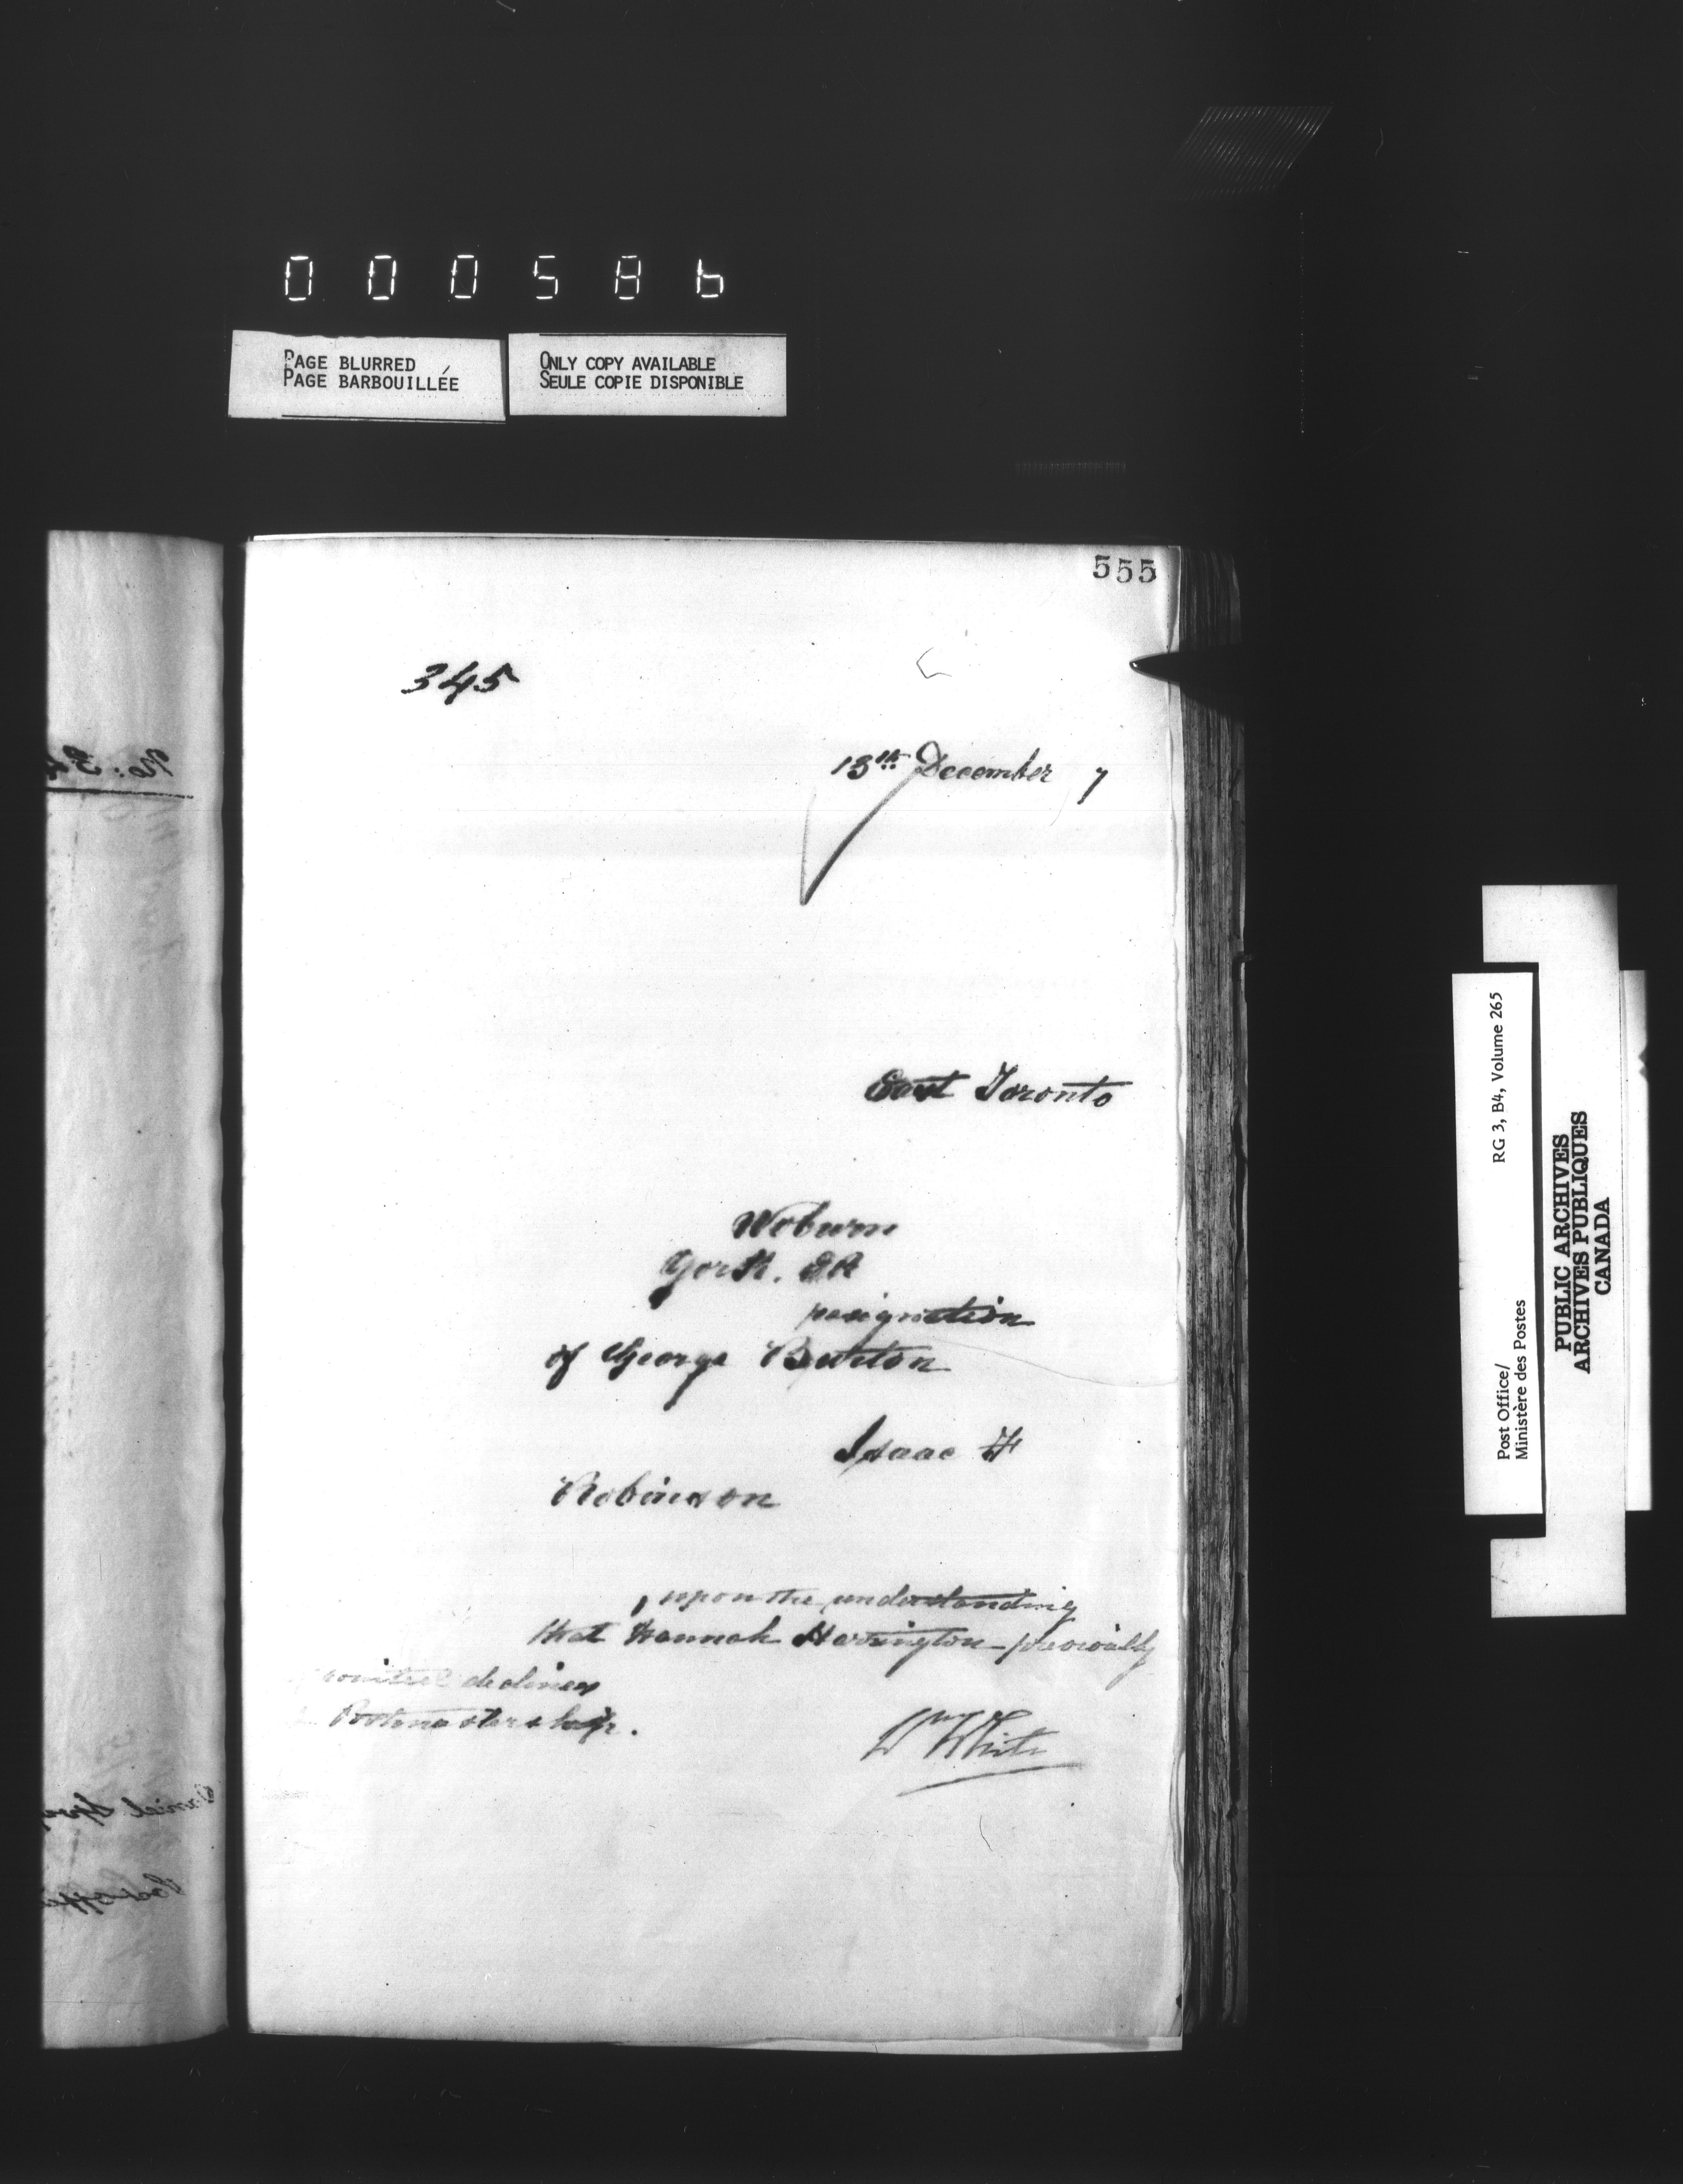 000586
PAGE BLURRED
PAGE BARBOUILLÉE
ONLY COPY AVAILABLE
SEULE COPIE DISPONIBLE
555
345
13th December 7
East Toronto
Woburn
York. ER
resignation
of George Burton
Isaac H
Robinson
, upon the understanding
that Hannah Harrington previously
declines
Postmastership.
Wm White
No: 34
Daniel
Post Office/
Ministère des Postes
RG 3, B4, Volume 265
PUBLIC ARCHIVES
ARCHIVES PUBLIQUES
CANADA